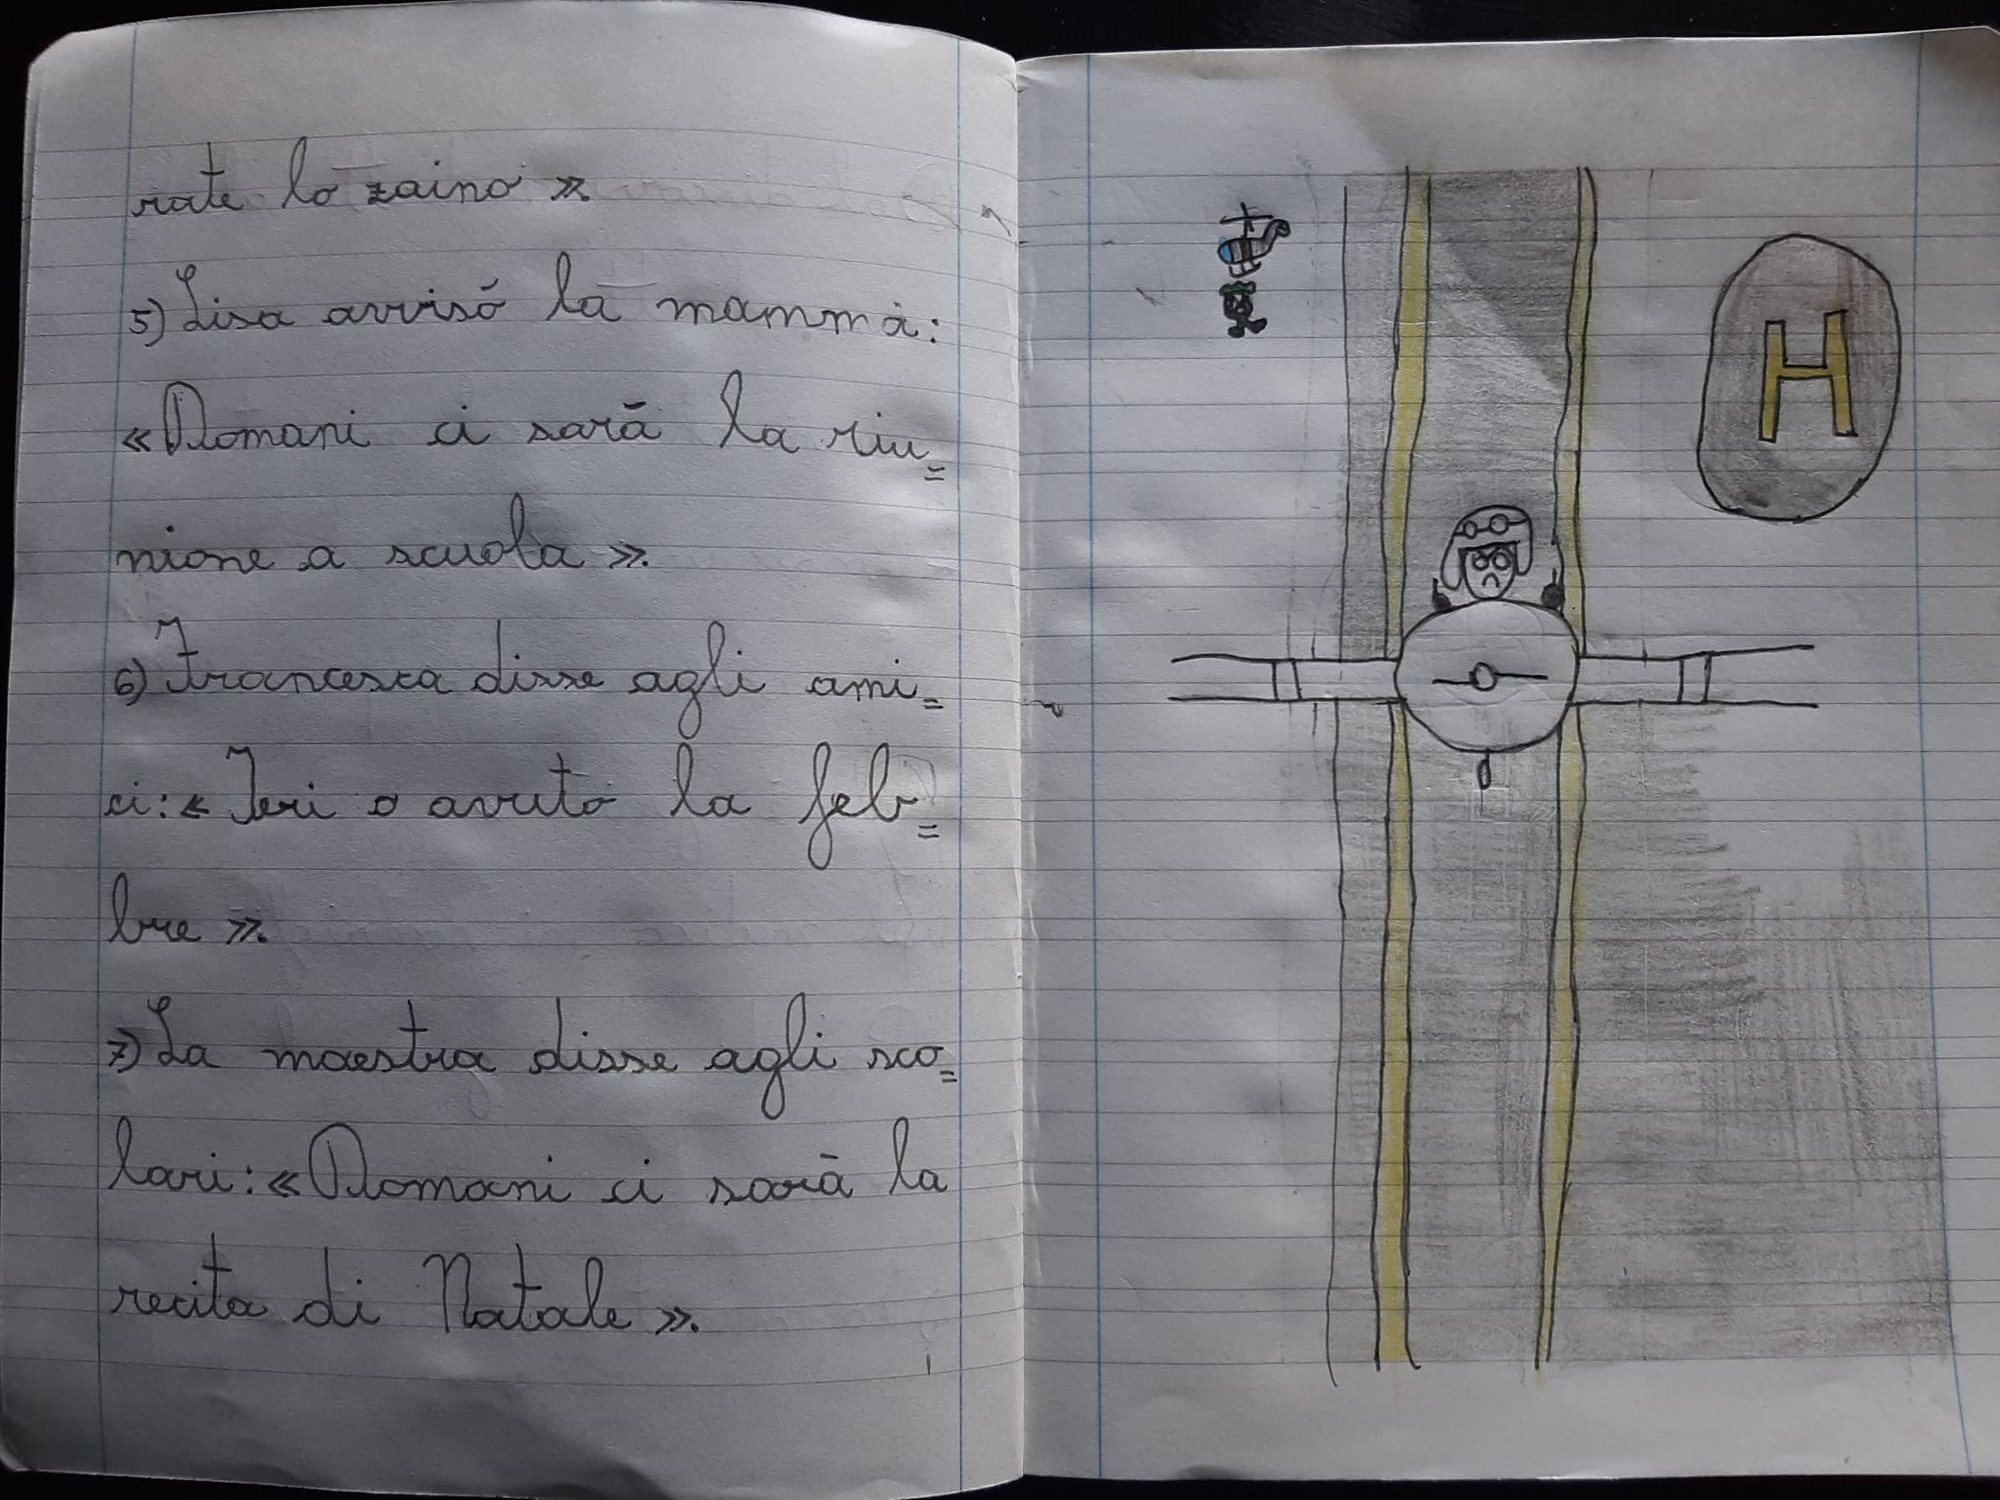 rate lo zaino ».
5) Lisa avvisò la mamma:
« Domani ci sarà la riu=
nione a scuola ».
6) Francesca disse agli ami=
ci: « Ieri o avuto la feb=
bre ».
7) La maestra disse agli sco=
lari: « Domani ci sarà la
recita di Natale ».
H